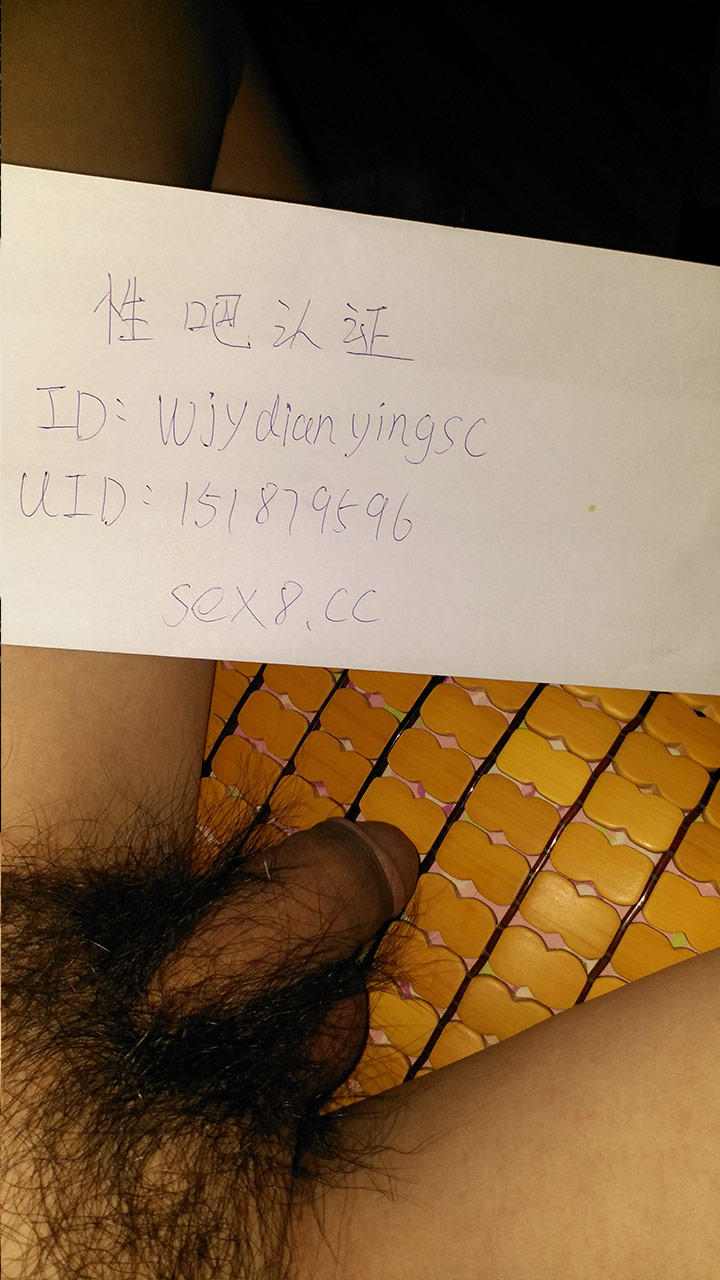 性吧认证
ID: wjydianyingsc
UID: 151879596
sex8.cc